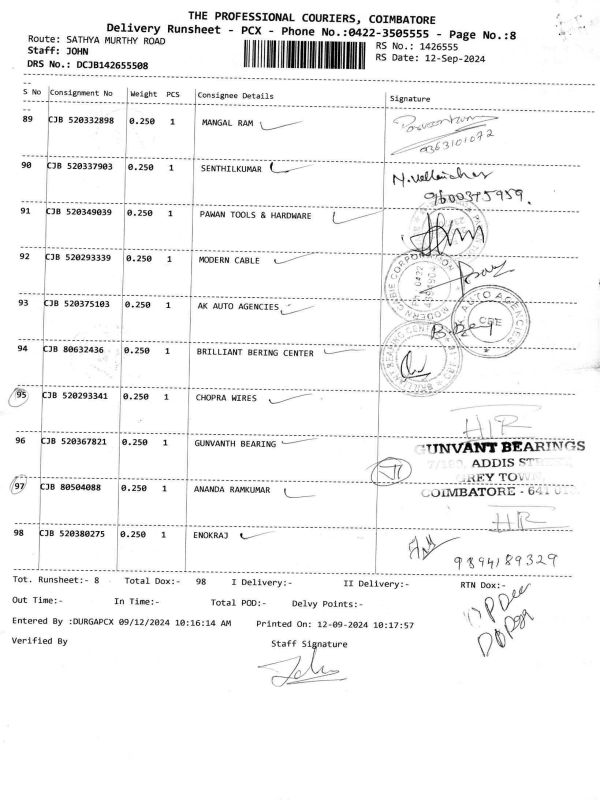 THE PROFESSIONAL COURIERS, COIMBATORE
Delivery Runsheet - PCX - Phone No.:0422-3505555 - Page No.:8
Route: SATHYA MURTHY ROAD
RS No.: 1426555
Staff: JOHN
RS Date: 12-Sep-2024
DRS No.: DCJB142655508
S No Consignment No Weight PCS Consignee Details Signature
89 CJB 520332898 0.250 1 MANGAL RAM
9363101072
90 CJB 520337903 0.250 1 SENTHILKUMAR
9600395959.
91 CJB 520349039 0.250 1 PAWAN TOOLS & HARDWARE
92 CJB 520293339 0.250 1 MODERN CABLE
93 CJB 520375103 0.250 1 AK AUTO AGENCIES
AUTO AGENCIES
CBE
94 CJB 80632436 0.250 1 BRILLIANT BERING CENTER
95 CJB 520293341 0.250 1 CHOPRA WIRES
HIR
96 CJB 520367821 0.250 1 GUNVANTH BEARING
GUNVANT BEARINGS
ADDIS
GREY TOWN
COIMBATORE - 641
97 CJB 80504088 0.250 1 ANANDA RAMKUMAR
HR
98 CJB 520380275 0.250 1 ENOKRAJ
9894189329
Tot. Runsheet:- 8 Total Dox:- 98 I Delivery:- II Delivery:- RTN Dox:-
Out Time:- In Time:- Total POD:- Delvy Points:-
Entered By :DURGAPCX 09/12/2024 10:16:14 AM Printed On: 12-09-2024 10:17:57
Verified By Staff Signature
John